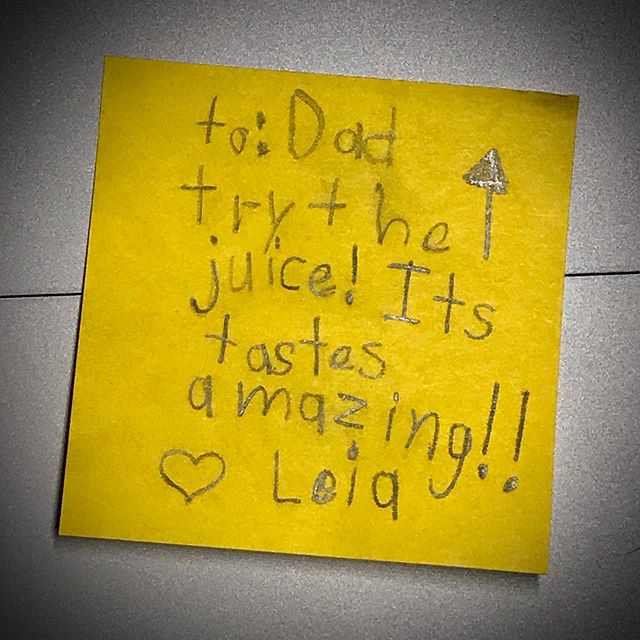 to: Dad
try the
juice! Its
tastes
amazing!!
Leia